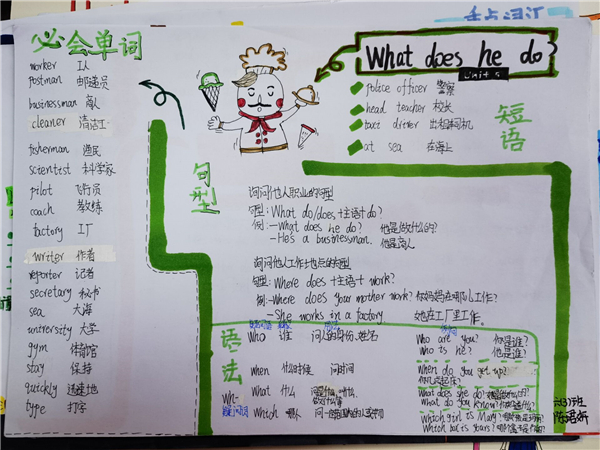 重点词汇
必会单词
worker 工人
postman 邮递员
businessman 商人
cleaner 清洁工
fisherman 渔民
scientist 科学家
pilot 飞行员
coach 教练
factory 工厂
writer 作者
reporter 记者
secretary 秘书
sea 大海
university 大学
gym 体育馆
stay 保持
quickly 迅速地
type 打字
What does he do
Unit 5
短语
police officer 警察
head teacher 校长
taxi driver 出租车司机
at sea 在海上
句型
询问他人职业的句型
句型: What do/does+主语+do?
例: -What does he do? 他是做什么的?
-He's a businessman. 他是商人
询问他人工作地点的句型
句型: Where does+主语+work?
例: -Where does your mother work? 你妈妈在哪儿工作?
-She works in a factory 她在工厂里工作.
语法
Who 谁 问人的身份,姓名
Who are you? 你是谁?
Who is he? 他是谁?
when 什么时候 问时间
When do you get up?
你几点起床?
wh-
What 什么
What does she do?
What do you know?
Which 哪个
Which girl is Mary?
Which bag is yours?
六(3)班